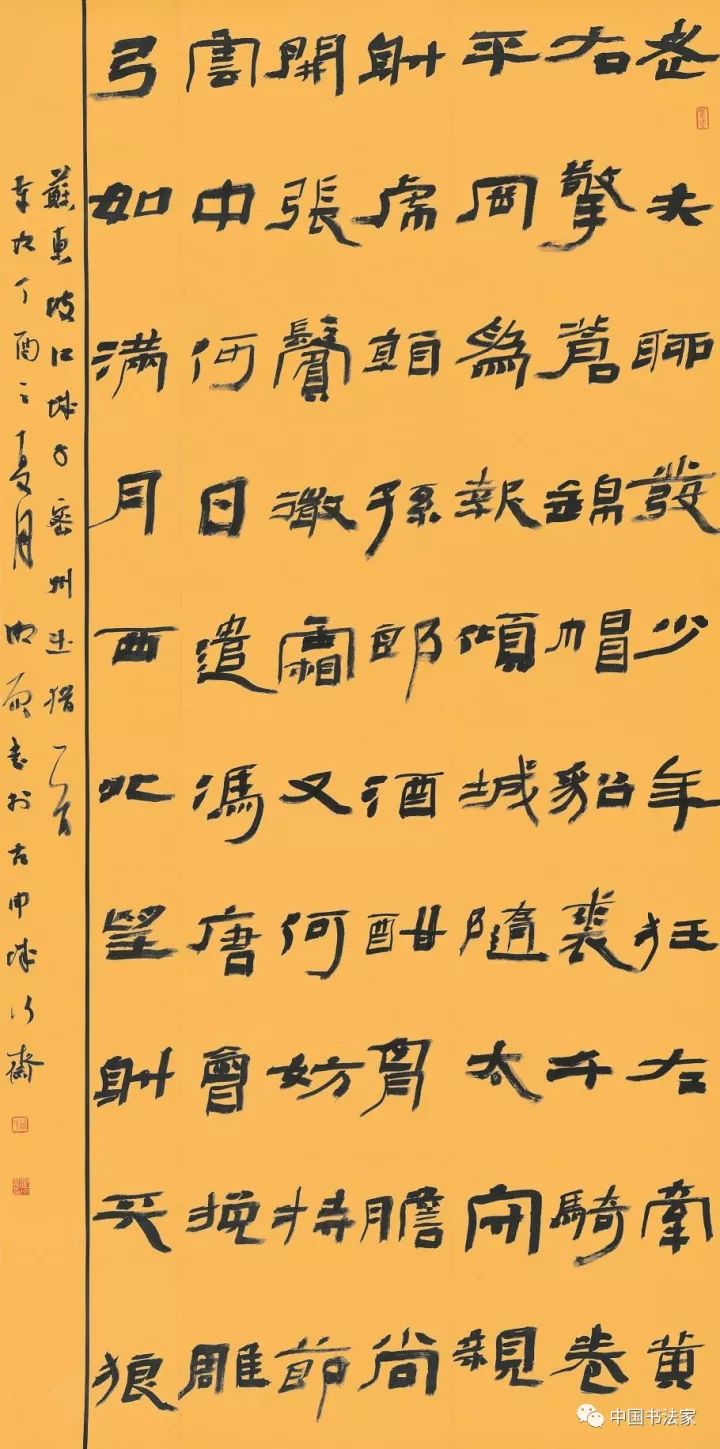 老夫聊發少年狂左牽黃
右擎蒼錦帽貂裘千騎卷
平岡爲報傾城隨太守親
射虎看孫郎酒酣胸膽尚
開張鬢微霜又何妨持節
雲中何日遣馮唐會挽雕
弓如滿月西北望射天狼
蘇東坡江城子密州出獵一首
丁酉之夏月書於古申城行齋
中国书法家